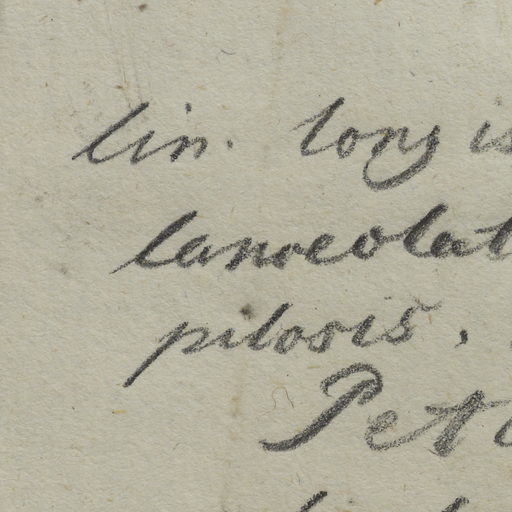 lin. long is
lanceolat
pilosis.
Peta